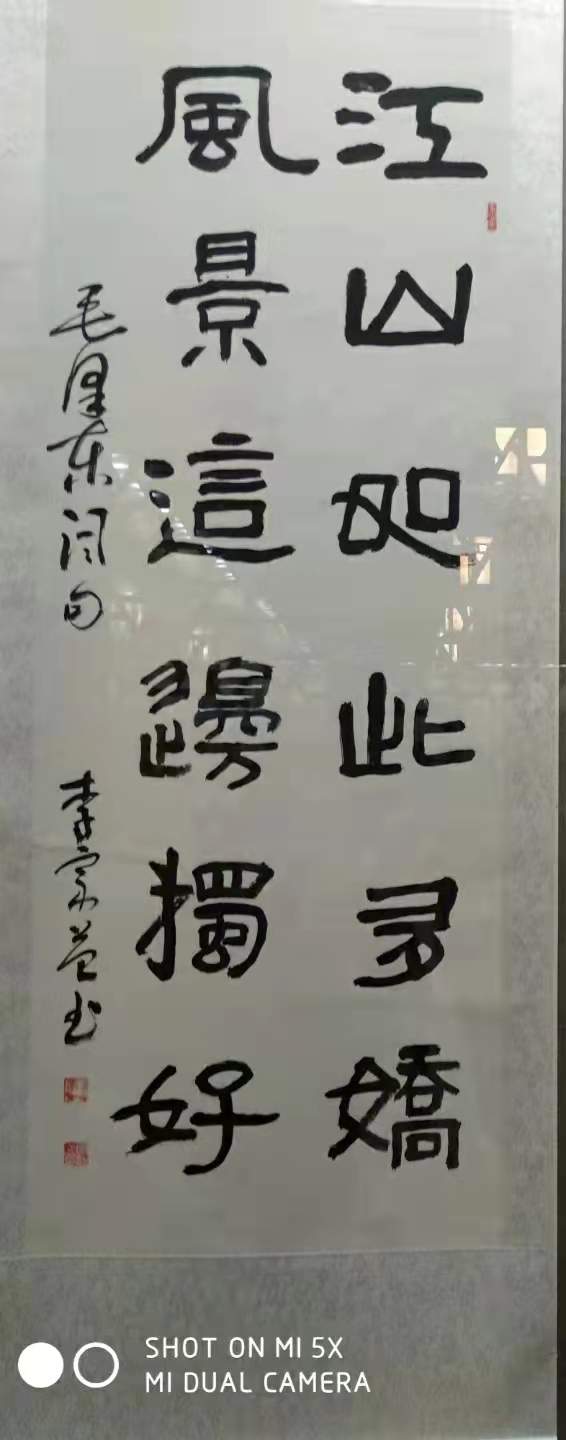 江山如此多嬌
風景這邊獨好
毛澤东詞句
李家益书
SHOT ON MI 5X
MI DUAL CAMERA